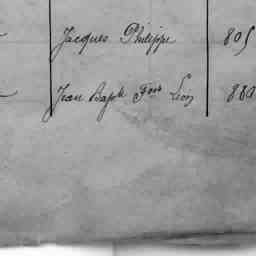 Jacques Philippe 805
Jean Bapte Fois Léon 880